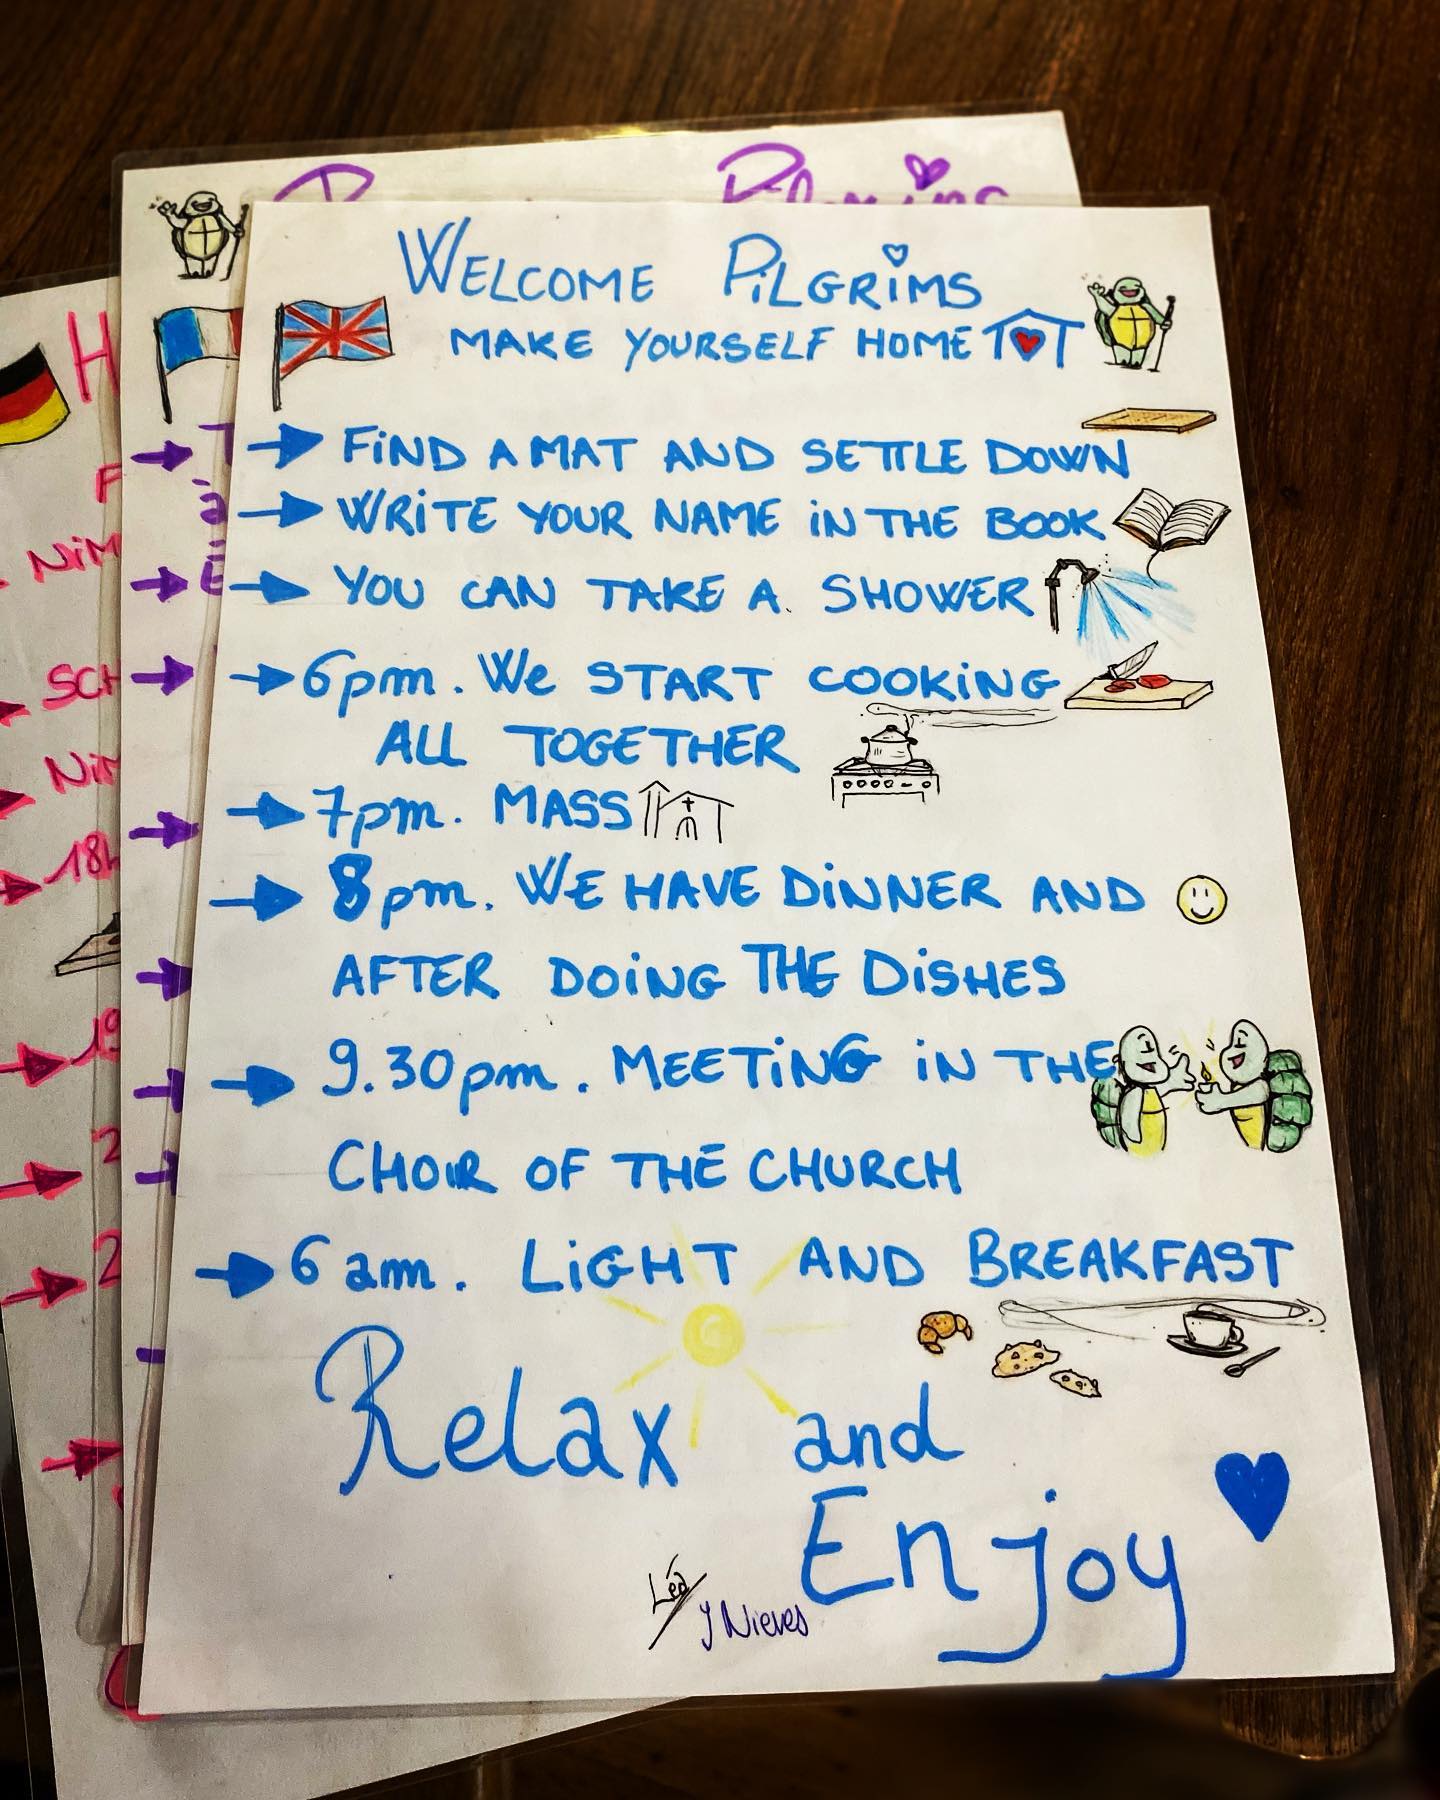 WELCOME PILGRIMS
MAKE YOURSELF HOME
FIND A MAT AND SETTLE DOWN
WRITE YOUR NAME IN THE BOOK
YOU CAN TAKE A SHOWER
6pm. We START COOKING
ALL TOGETHER
7pm. MASS
8pm. WE HAVE DINNER AND
AFTER DOING THE DISHES
9.30pm. MEETING IN THE
CHOIR OF THE CHURCH
6 am. LIGHT AND BREAKFAST
Relax and
Enjoy
Léa
y Nieves
Pilgrims
18h